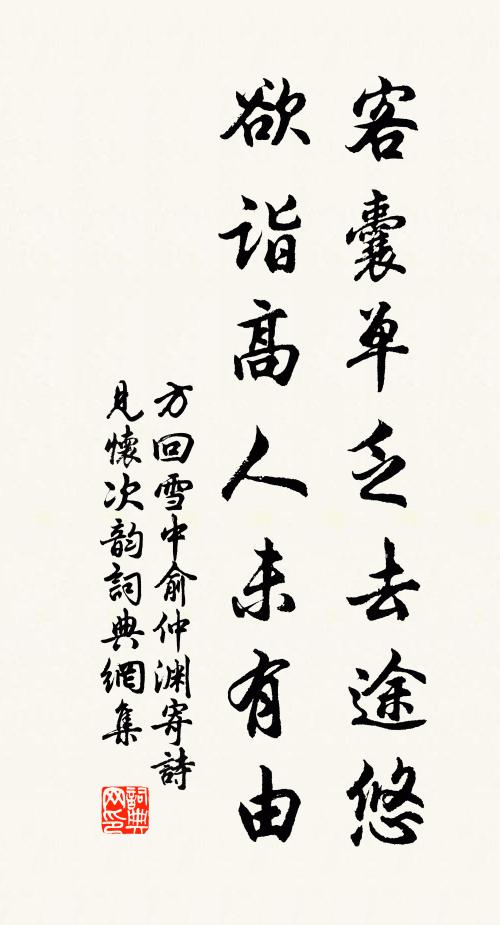 客囊单乏去途悠
欲詣高人未有由
方回雪中俞仲渊寄詩
見懷次韵詞典網集
詞典
网印